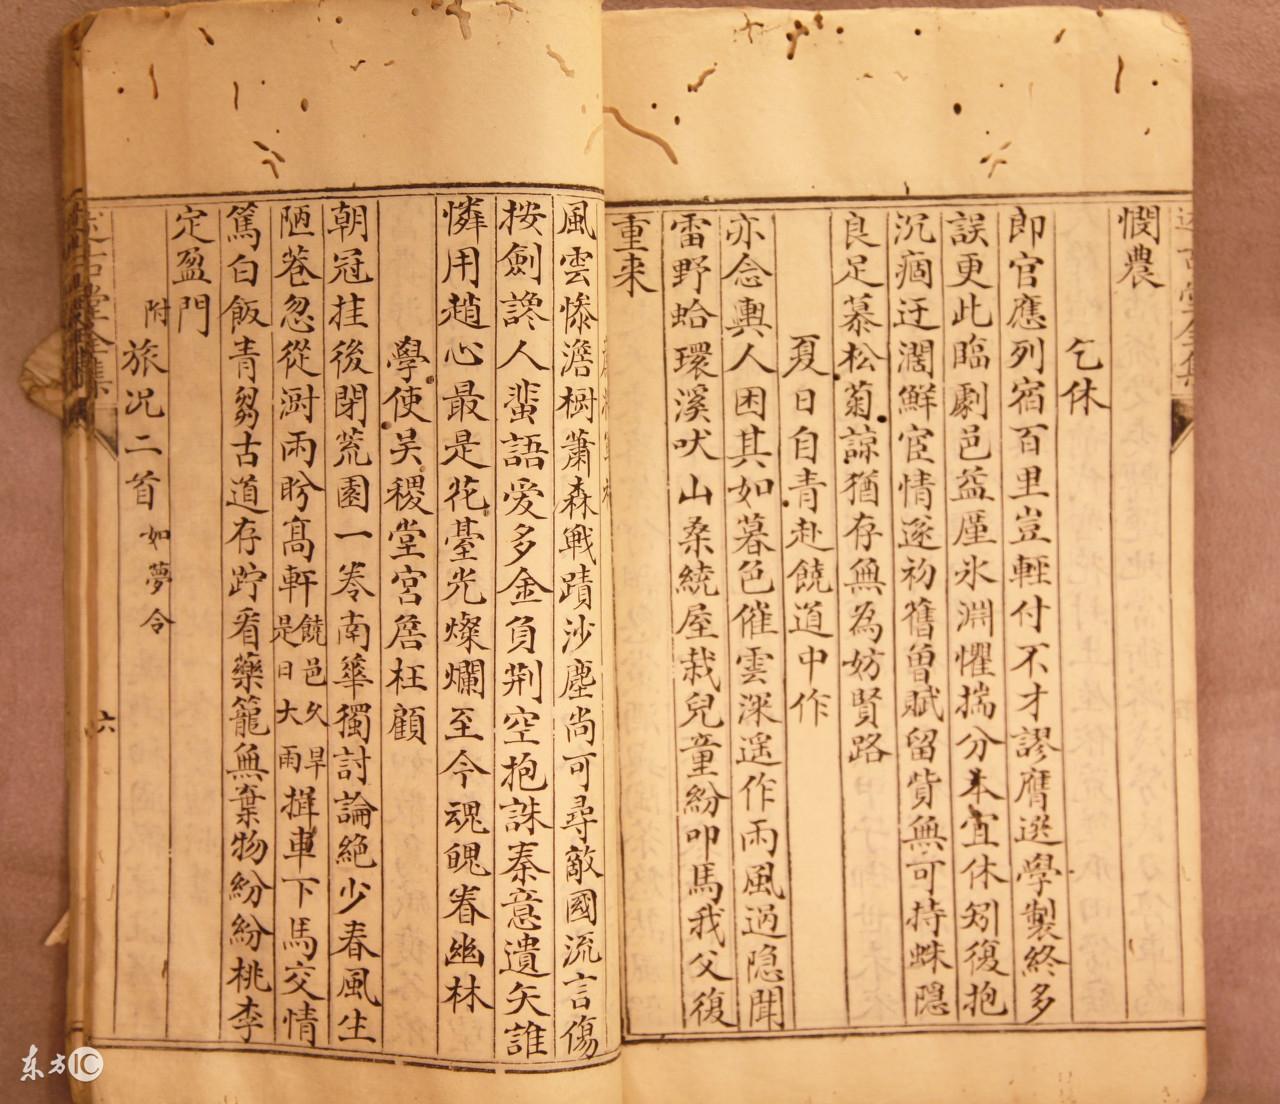 憫農
乞休
即官應列宿百里豈輕付不才謬膺選學製終多
誤更此臨劇邑益厪氷淵懼揣分本宜休矧復抱
沉痼迂濶鮮宦情遂初舊曽賦留貲無可持蛛隠
良足慕松菊諒猶存無為妨賢路
夏日自青赴饒道中作
亦念輿人困其如暮色催雲深遥作雨風過隠聞
雷野蛤環溪吠山桑繞屋栽兒童紛叩馬我父復
重来
風雲慘澹樹蕭森戰蹟沙塵尚可尋敵國流言傷
按劍讒人蜚語愛多金負荆空抱誅秦意遺矢誰
憐用趙心最是花臺光燦爛至今魂魄眷幽林
學使吴稷堂宮詹枉顧
朝冠挂後閉荒園一卷南華獨討論絶少春風生
陋巷忽從澍雨盻髙軒饒邑久旱是日大雨揖車下馬交情
篤白飯青芻古道存跱看藥籠無棄物紛紛桃李
定盈門
附
旅况二首如夢令
六
东方IC